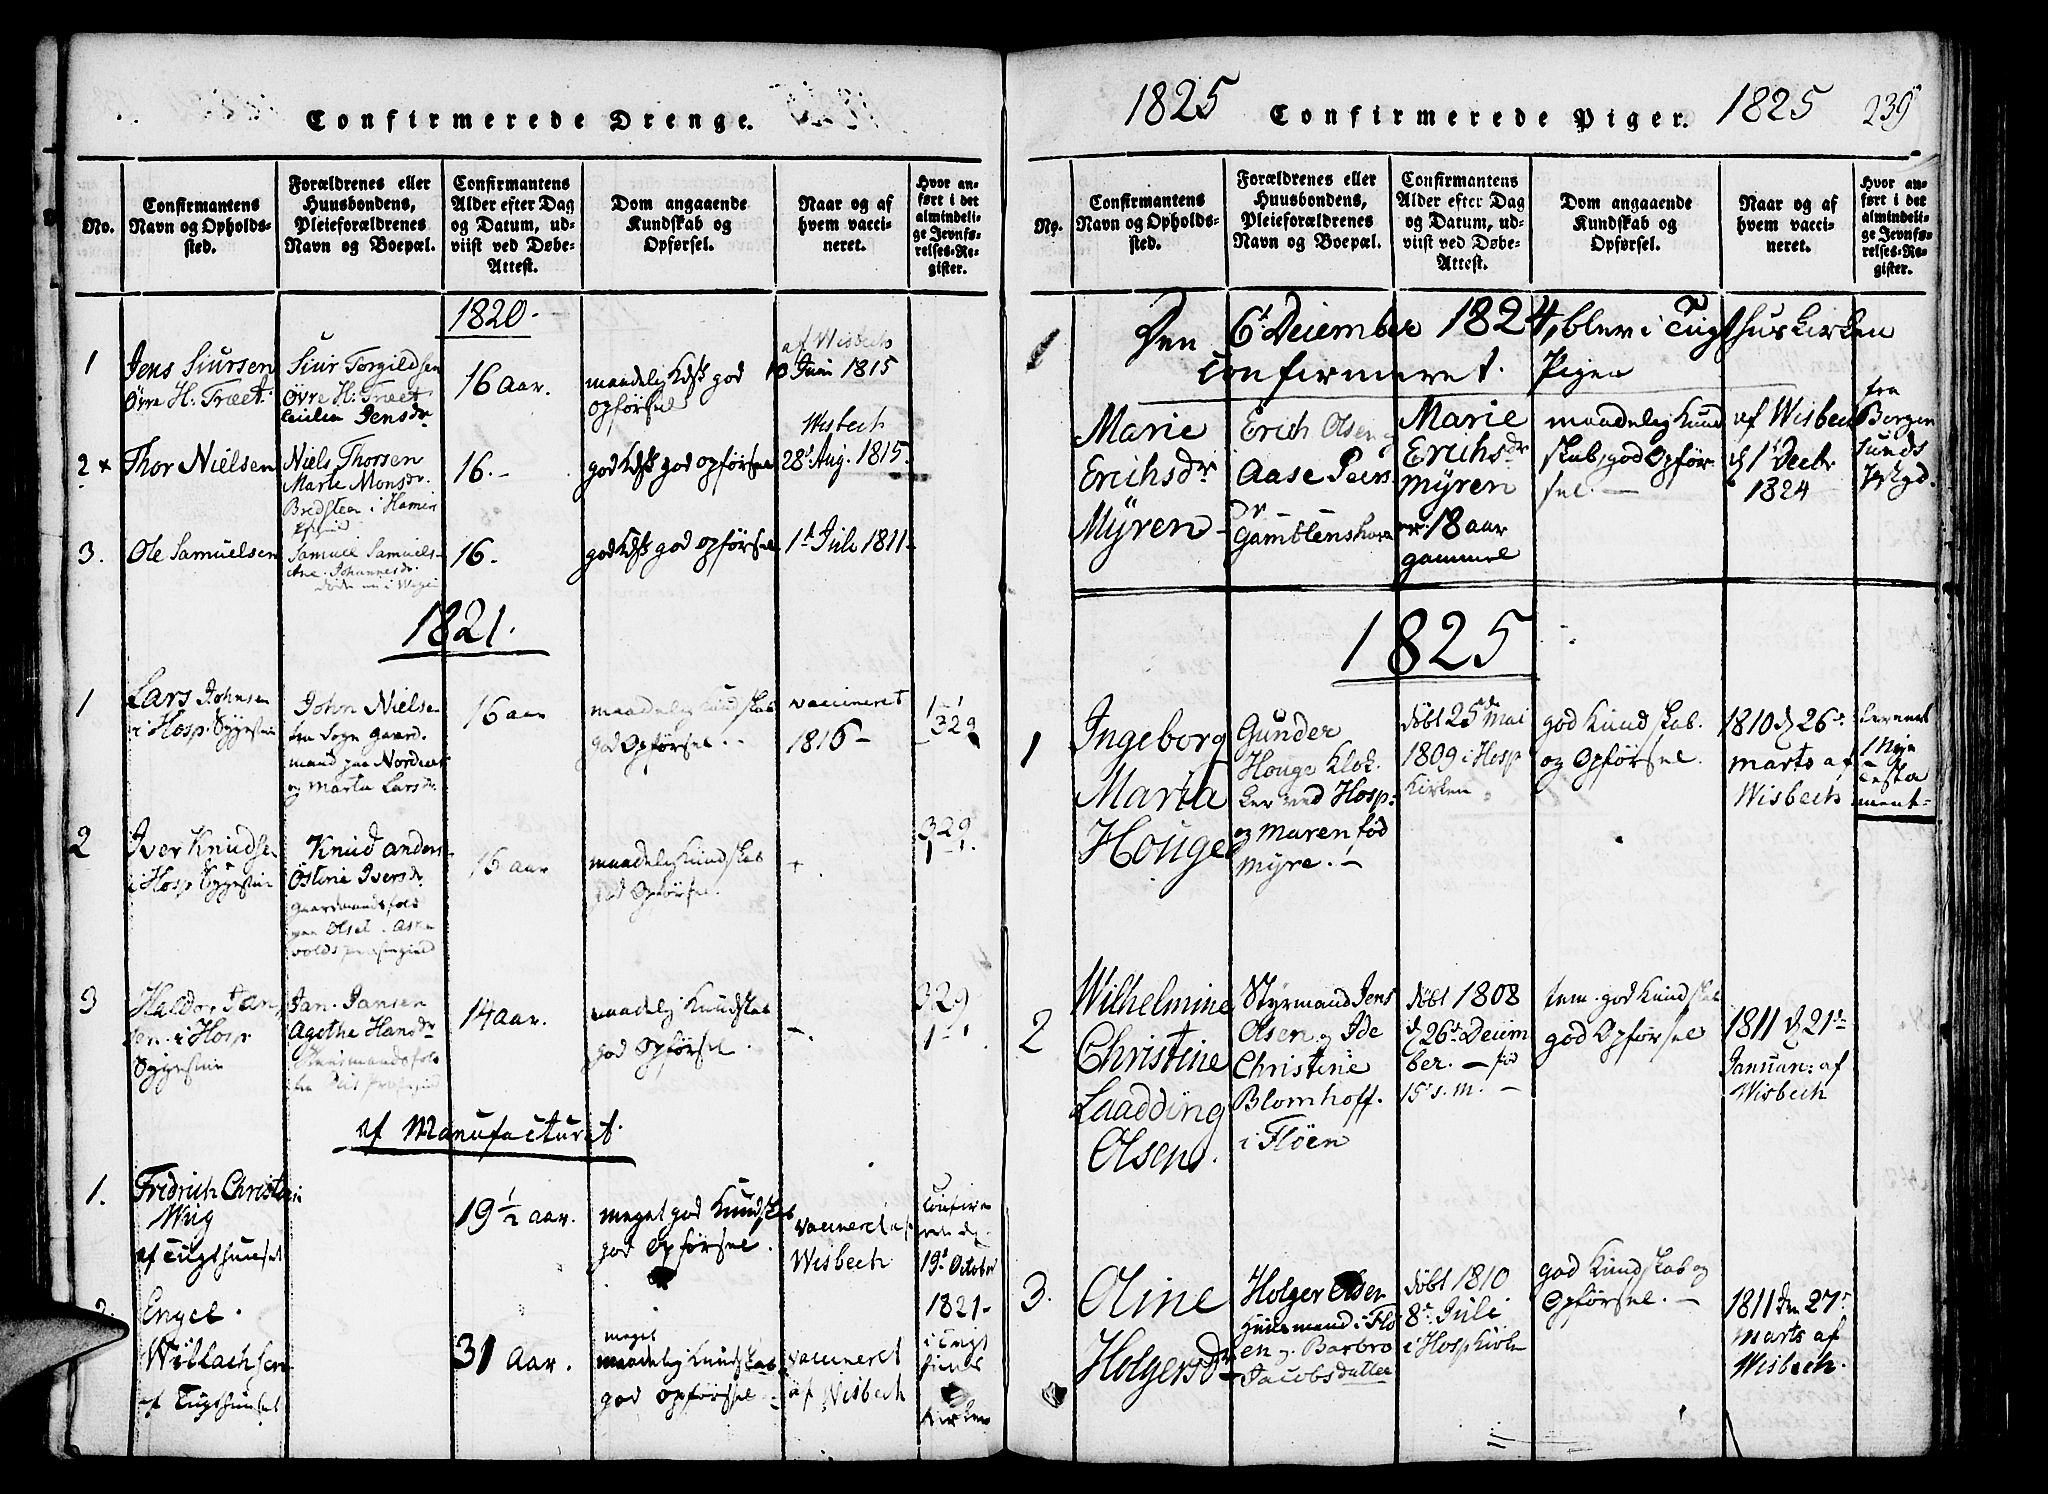 Confirmerede Drenge.
No.
Confirmantens
Navn og Opholds-
sted.
Forældrenes eller
Huusbondens,
Pleieforældrenes
Navn og Boepæl.
Confirmantens
Alder efter Dag
og Datum, ud-
viist ved Døbe-
Attest.
Dom angaaende
Kundskab og
Opførsel.
Naar og af
hvem vacci-
neret.
Hvor an-
ført i det
almindeli-
ge Jevnfø-
relses-Re-
gister.
1820.
1
Jens Siursen
Øvre H: Træet.
Siur Torgildsen
Øvre H: Træet
Cecilia Jensdr
16 Aar.
maadelig Kdsk god
Opførsel
af Wisbech
10 Juni 1815
2 x
Thor Nielsen
Niels Thorsen
Marte Monsdr.
Bredsteen i
16.-
god Kdsk god opførsel
Wisbech
28d Aug. 1815.
3.
Ole Samuelsen
Samuel Samuels-
Ane Johannesdr.
16-
god Kdsk god opførsel
1d Juli 1811-
1821.
1
Lars Johnsen
i Hosp. Sygestue
John Nielsen
fra Sogn Gaard-
mand paa Nordnes
og Marta Larsdr.
16 aar
maadelig Kundskab
god Opførsel.
vaccineret
1816-
1-1
329
2
Iver Knudsen
i Hosp Sygestue
Knud anders-
Östine Iversdr
Gaardmandsfolk
paa Olset. Ask-
volds præstegield
15 aar
maadelig Kundskab
god Opførsel.
329
1-1.
3
Haldor Jan-
sen i Hosp
Sygestue
Jan Jansen
Agethe Hansdr
14 aar.
maadelig Kundskab
god Opførsel.
329
1-1
af Manufacturet.
1.
Fridrich Christian
Wiig
af Tugthuuset
19 1/2 aar.
meget god Kundskab
god opførsel.
vaccineret af
Wisbech
confirme
rede d.
19d October
1821-
i Tugt
huus
Kirken
2.
Engel
Willachsen
af Tugthuuset
31 Aar.
meget
maadelig Kundskab
god opførsel.
vaccineret
af Wisbech
1825
Confirmerede Piger.
1825
239
No.
Confirmantens
Navn og Opholds-
sted.
Forældrenes eller
Huusbondens,
Pleieforældrenes
Navn og Boepæl.
Confirmantens
Alder efter Dag
og Datum, ud-
viist ved Døbe-
Attest.
Dom angaaende
Kundskab og
Opførsel.
Naar og af
hvem vacci-
neret.
Hvor an-
ført i det
almindeli-
ge Jevnfø-
relses-Re-
gister.
1
Den 6t December 1824, blev i Tugthuskirken
confirmeret. Pigen
Marie
Erichsdr
Myren-
Erich Olsen og
Aase Peers
Dr
Marie
Erichsdr
Myren
er 18 aar
gammel
maadelig Kund
skab, god Opfør-
sel.-
af Wisbech
d 1t Decbr
1824
fra
Borgen
sunds
1825
1
Ingeborg
Maria
Houge
Gunder
Houge Klok-
ker ved Hosp:
og Maren fød
Myre.-
døbt 25de Mai
1809 i Hosp
Kirken
god Kundskab.
og Opførsel.
1810 d 26de
marts af
Wisbech
Leveret
1 Nye
Testa
ment-
2
Wilhelmine
Christine
Laadding
Olsen.
Styrmand Jens
Olsen og Ide
Christine
Blomhoff.
i Fløen
døbt 1808
d 26d Decem
ber.- fød
15 s. m.-
tem. god Kundskab
god Opførsel
1811 d 21de
Januar: af
Wisbech
3.
Oline
Holgersdr
Holger Olsen
Huusmand i Flø
en og Barbro
Jacobsdatter
døbt 1810
8de Juli
i Hosp Kirken
god Kundskab og
Opførsel.-
1811 den 27de
Marts af
Wisbech.